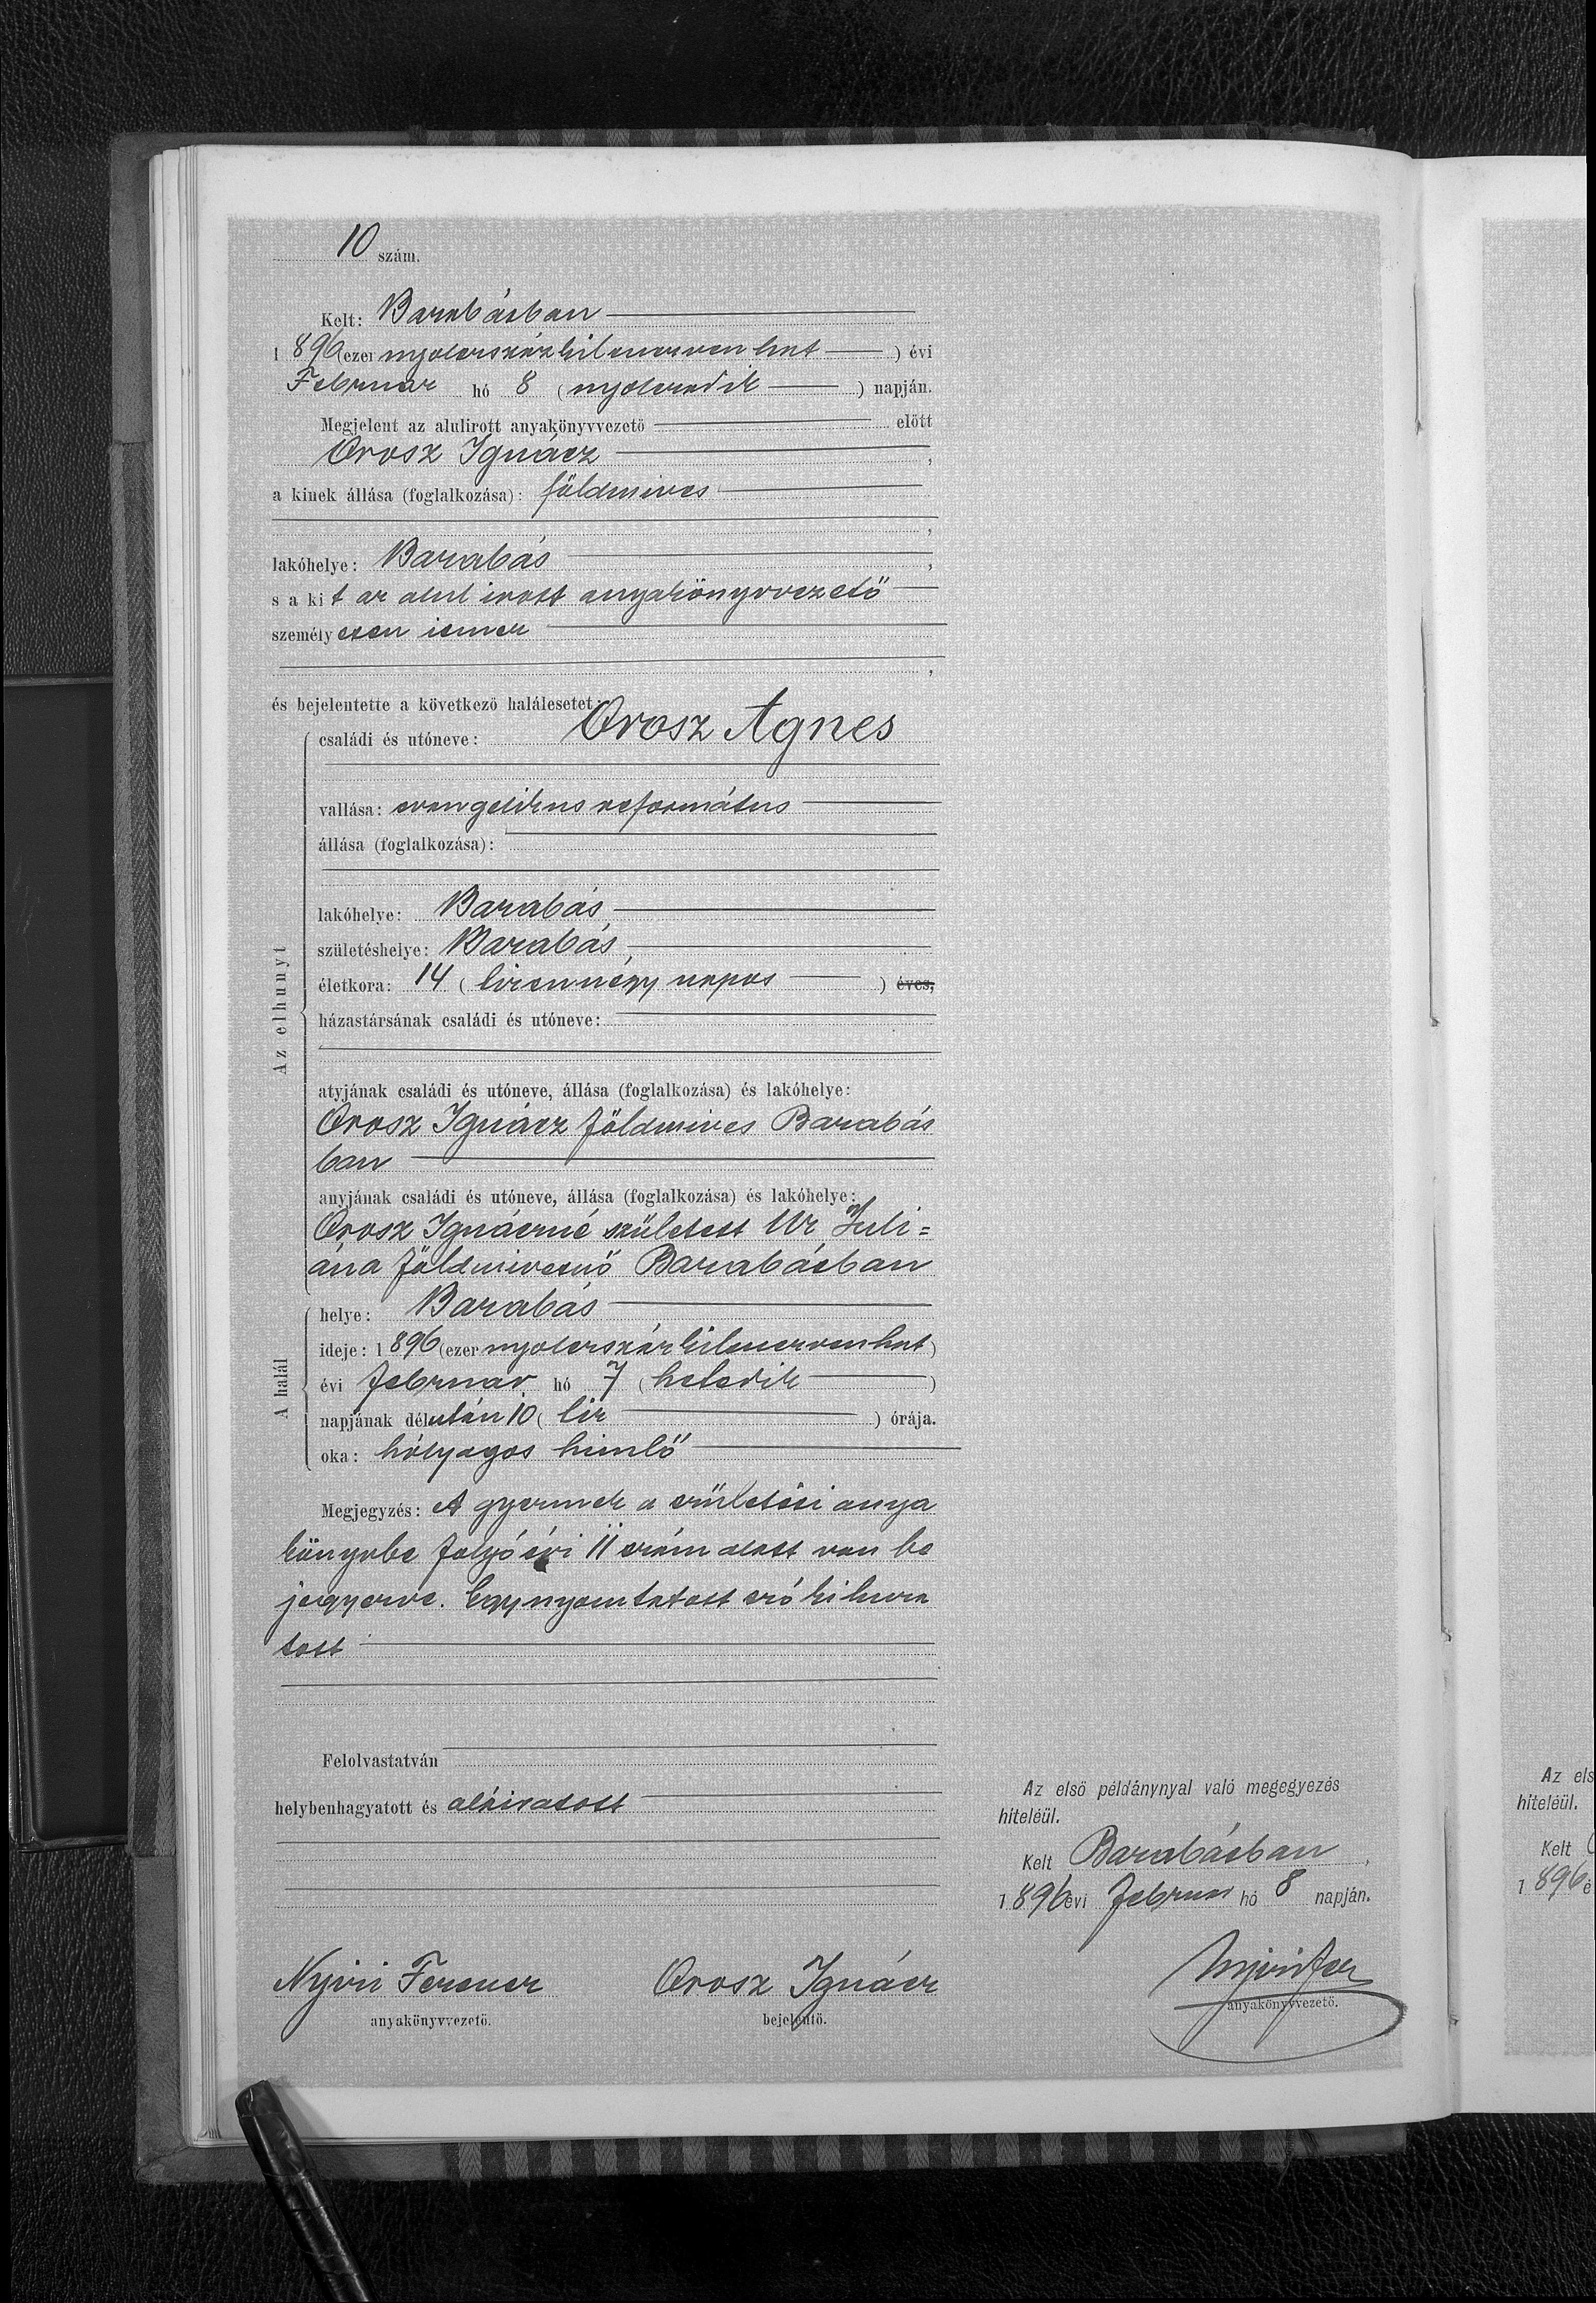 10 szám.
Kelt: Barabásban
1896 (ezer nyolcszázkilencvenhat ) évi
Február hó 8 (nyolcadik ) napján.
Megjelent az alulirott anyakönyvvezető előtt
Orosz Ignácz ,
a kinek állása (foglalkozása): földmives
,
lakóhelye: Barabás ,
s a kit az alul irott anyakönyvvezető
személyesen ismer
,
és bejelentette a következő halálesetet:
családi és utóneve: Orosz Agnes
vallása: evangelikus református
állása (foglalkozása):
lakóhelye: Barabás
születéshelye: Barabás,
életkora: 14 (tizennégy napos ) éves,
házastársának családi és utóneve:
Az elhunyt
atyjának családi és utóneve, állása (foglalkozása) és lakóhelye:
Orosz Ignácz földmives Barabás
ban
anyjának családi és utóneve, állása (foglalkozása) és lakóhelye:
Orosz Ignácné született Ur Juli=
ána földmivesnő Barabásban
A halál
helye: Barabás
ideje: 1896 (ezer nyolcszázkilencvenhat)
évi február hó 7 (hetedik )
napjának délután 10 (tiz ) órája.
oka: hólyagos himlő
Megjegyzés: A gyermek a születési anya
könyvbe folyó évi 11 szám alatt van be
jegyezve. Egy nyomtatott szó kihuza
tott
Felolvastatván
helybenhagyatott és aláiratott
Nyiri Ferencz
anyakönyvvezető.
Orosz Ignácz
bejelentő.
Az első példánynyal való megegyezés
hiteléül.
Kelt Barabásban ,
1896 évi február hó 8 napján.
Nyiri Fer
anyakönyvvezető.
Az els
hiteléül.
Kelt
1896 é